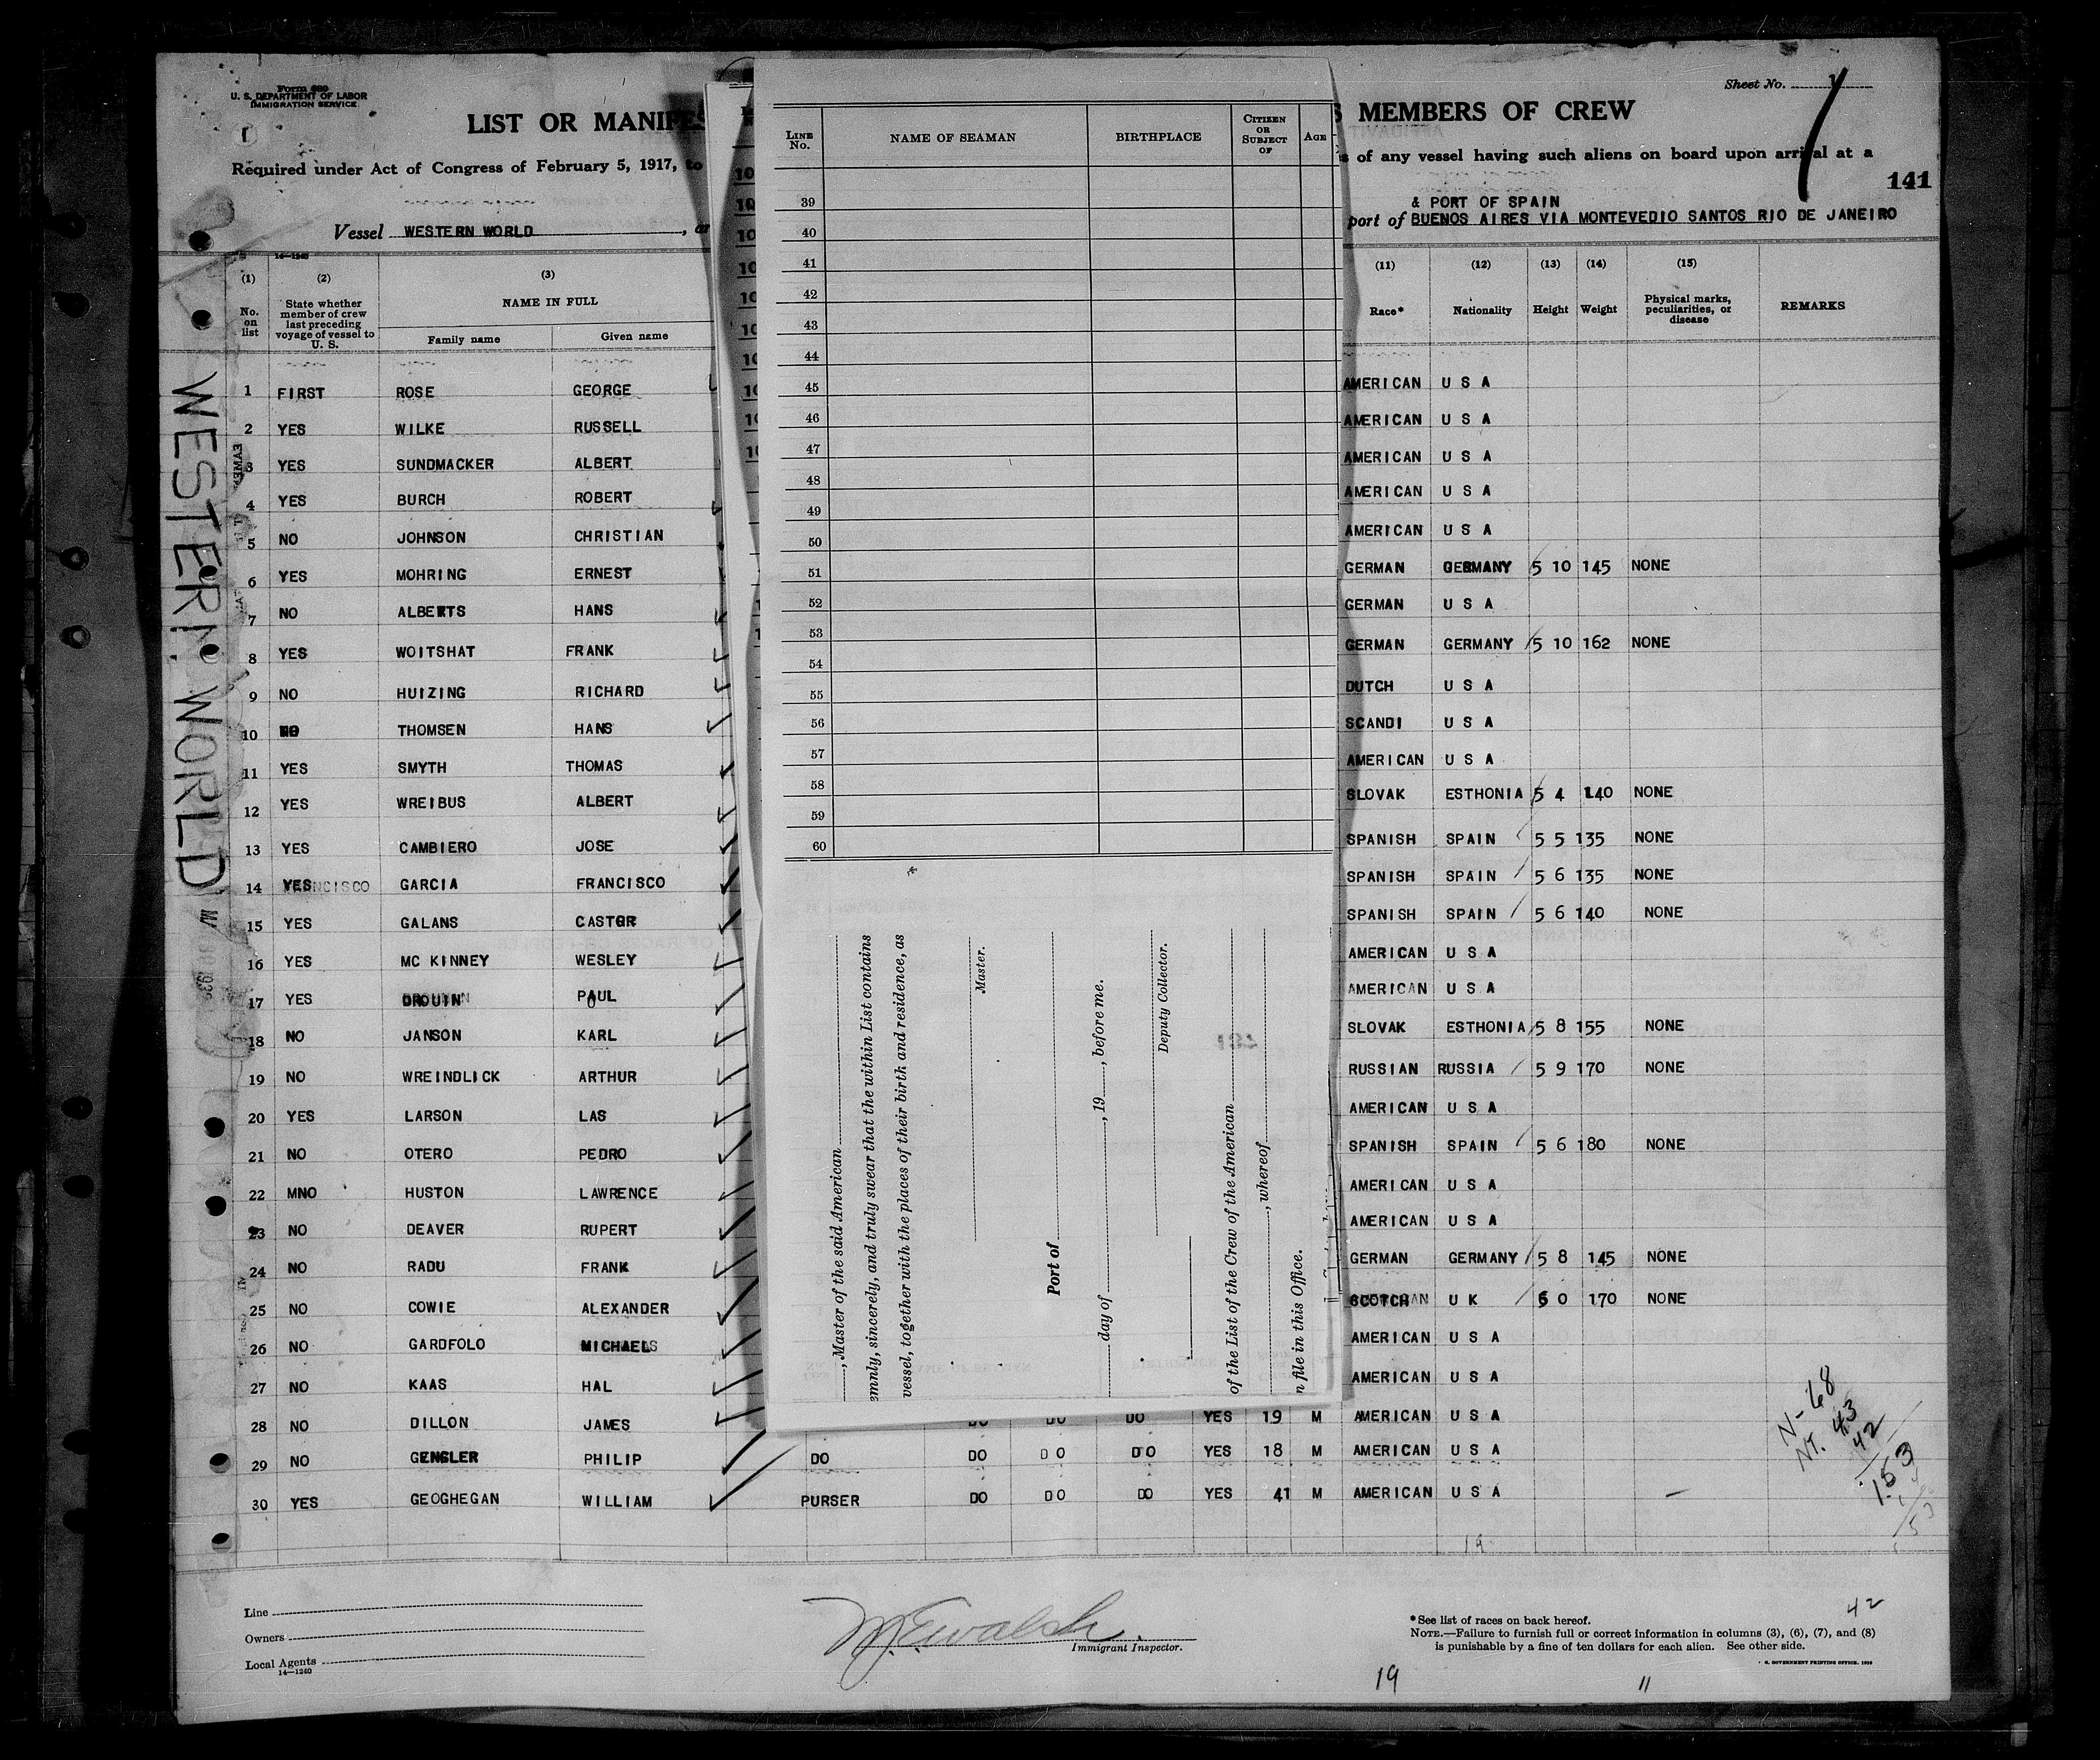 Form 680
U. S. DEPARTMENT OF LABOR
IMMIGRATION SERVICE
Sheet No. 1
LIST OR MANIFES
S MEMBERS OF CREW
Required under Act of Congress of February 5, 1917, to
s of any vessel having such aliens on board upon arrival at a
141
& PORT OF SPAIN
Vessel WESTERN WORLD
port of BUENOS AIRES VIA MONTEVEDIO SANTOS RIO DE JANEIRO
14—1240
(1) (2) (3)
No. on list
State whether member of crew last preceding voyage of vessel to U. S.
NAME IN FULL
Family name Given name
(11) (12) (13) (14) (15)
Race* Nationality Height Weight Physical marks, peculiarities, or disease REMARKS
WESTERN WORLD
1 FIRST ROSE GEORGE AMERICAN U S A
2 YES WILKE RUSSELL AMERICAN U S A
3 YES SUNDMACKER ALBERT AMERICAN U S A
4 YES BURCH ROBERT AMERICAN U S A
5 NO JOHNSON CHRISTIAN AMERICAN U S A
6 YES MOHRING ERNEST GERMAN GERMANY 5 10 145 NONE
7 NO ALBERTS HANS GERMAN U S A
8 YES WOITSHAT FRANK GERMAN GERMANY 5 10 162 NONE
9 NO HUIZING RICHARD DUTCH U S A
10 NO THOMSEN HANS SCANDI U S A
11 YES SMYTH THOMAS AMERICAN U S A
12 YES WREIBUS ALBERT SLOVAK ESTHONIA 5 4 140 NONE
13 YES CAMBIERO JOSE SPANISH SPAIN 5 5 135 NONE
14 YES GARCIA FRANCISCO SPANISH SPAIN 5 6 135 NONE
15 YES GALANS CASTOR SPANISH SPAIN 5 6 140 NONE
16 YES MC KINNEY WESLEY AMERICAN U S A
17 YES DROUIN PAUL AMERICAN U S A
18 NO JANSON KARL SLOVAK ESTHONIA 5 8 155 NONE
19 NO WREINDLICK ARTHUR RUSSIAN RUSSIA 5 9 170 NONE
20 YES LARSON LAS AMERICAN U S A
21 NO OTERO PEDRO SPANISH SPAIN 5 6 180 NONE
22 MNO HUSTON LAWRENCE AMERICAN U S A
23 NO DEAVER RUPERT AMERICAN U S A
24 NO RADU FRANK GERMAN GERMANY 5 8 145 NONE
25 NO COWIE ALEXANDER SCOTCH U K 6 0 170 NONE
26 NO GARDFOLO MICHAEL AMERICAN U S A
27 NO KAAS HAL AMERICAN U S A
28 NO DILLON JAMES DO DO DO YES 19 M AMERICAN U S A
29 NO GENSLER PHILIP DO DO DO DO YES 18 M AMERICAN U S A
30 YES GEOGHEGAN WILLIAM PURSER DO DO DO YES 41 M AMERICAN U S A
LINE No. NAME OF SEAMAN BIRTHPLACE CITIZEN OR SUBJECT OF AGE
39
40
41
42
43
44
45
46
47
48
49
50
51
52
53
54
55
56
57
58
59
60
, Master of the said American
emnly, sincerely, and truly swear that the within List contains
vessel, together with the places of their birth and residence, as
Master.
Port of
day of , 19 , before me.
Deputy Collector.
of the List of the Crew of the American
, whereof
n file in this Office.
N-68
NT. 43
42
153
Line
Owners
Local Agents
14—1240
M.E. Walsh.
Immigrant Inspector.
42
*See list of races on back hereof.
NOTE.—Failure to furnish full or correct information in columns (3), (6), (7), and (8)
is punishable by a fine of ten dollars for each alien. See other side.
19
11